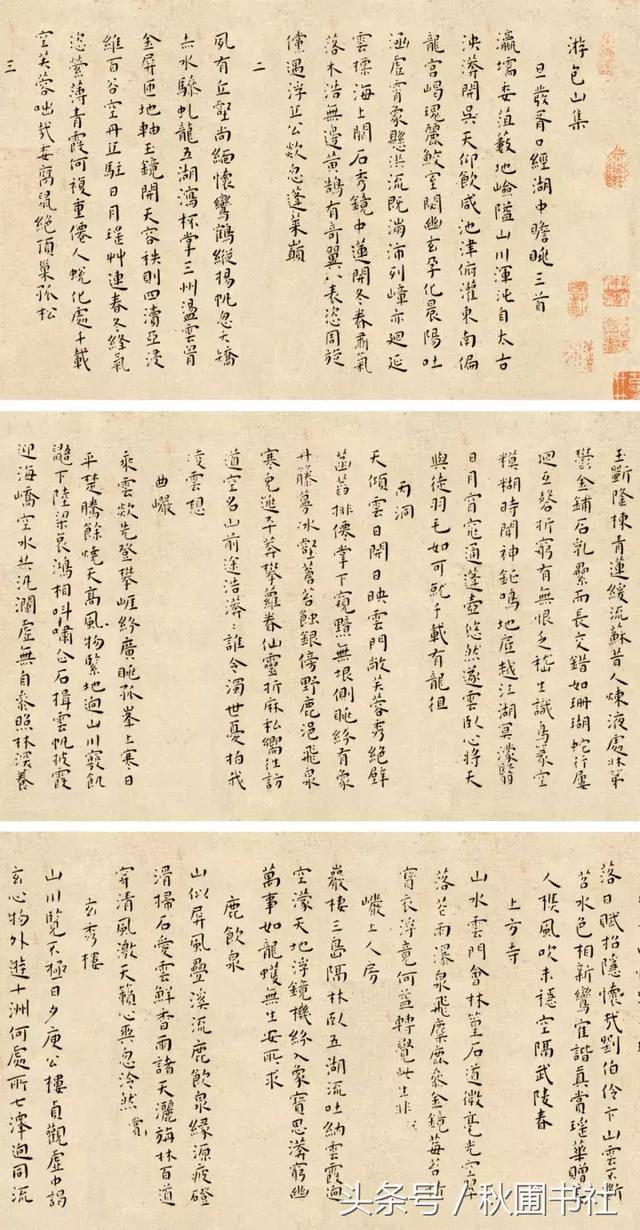 游包山集
旦發胥口經湖中瞻眺三首
瀛壖委菹藪地嶮隘山川渾沌自太古
泱漭開吳天仰飲咸池津俯灌東南偏
龍宮嶱瑰麗鮫室閟幽玄孕化晨陽吐
涵虛霄象懸洪流既滿沛列嶂亦迴延
雲標海上開石秀鏡中蓮開冬眷肅氣
落木浩無邊黃鵠有奇翼八表恣周旋
儻遇浮丘公欻忽蓬萊巔
二
夙有丘壑尚緬懷鸞鶴縱揚帆忽天矯
赤水驂虬龍五湖瀉杯掌三州溫雲胷
金屏匝地軸玉鏡開天容裱則四瀆亞浸
維百谷空丹丘駐日月瑤艸連春冬絳氣
恣縈薄青霞何複重僊人蛻化處千載
空芙蓉咄哉委离鼠絕頂巢孤松
三
玉斲隆棟青蓮緩流蘇昔人煉液處牀第
鬱金鋪石乳纍而長交錯如珊瑚蛇行屢
迴互磬折窮有無恨乏嵇生識鳥篆空
糢糊時聞神鉦鳴地底越江湖冥濛翳
日月窅窕通蓬壺悠然遂雲臥心將天
與徒羽毛如可就千載有龍徂
丙洞
天傾雲日開日映雲門敞芙蓉秀絕壁
菡萏排僊掌下窺黯無垠側眺終有象
丹藤蔓冰壑蒼苔蝕銀傍野鹿浥飛泉
寒兔逃平莽攀蘿眷仙靈折麻私嚮往訪
道空名山前途浩漭漭誰令濁世憂拍我
凌雲想
曲巖
乘雲欻先登攀崕終廣眺孤峯上寒日
平楚騰餘燒天高風物緊地迥山川竅飢
鼯下陸梁哀鴻相叫嘯厽石揖雲帆披霞
迎海嶠空水共汎瀾虛無自參照林溪養
落日賦招隱懷哉劉伯伶下山雲不斷
苔水色相新鸞宜諧真賞瑤華贈
人樵風吹未穩空隔武陵春
上方寺
山水雲門會林篁石道微毫光空翠
落花雨瀑泉飛麋鹿參金鏡莓苔
賓衣浮竟何益轉覺此生非
巖上人房
巖棲三島隅林臥五湖流吐納雲霞迥
空濛天地浮鏡機終入象寶思漭窮幽
萬事如龍蠖無生安所求
鹿飲泉
山似屏風疊溪流鹿飲泉緣源疲磴
滑掃石愛雲鮮香雨諸天灑旃林百道
穿清風激天籟心與忽泠然
玄秀樓
山川覽天極日夕庾公樓貞觀虛中謁
玄心物外遊十洲何處所七澤迥同流
头条号/秋圃书社